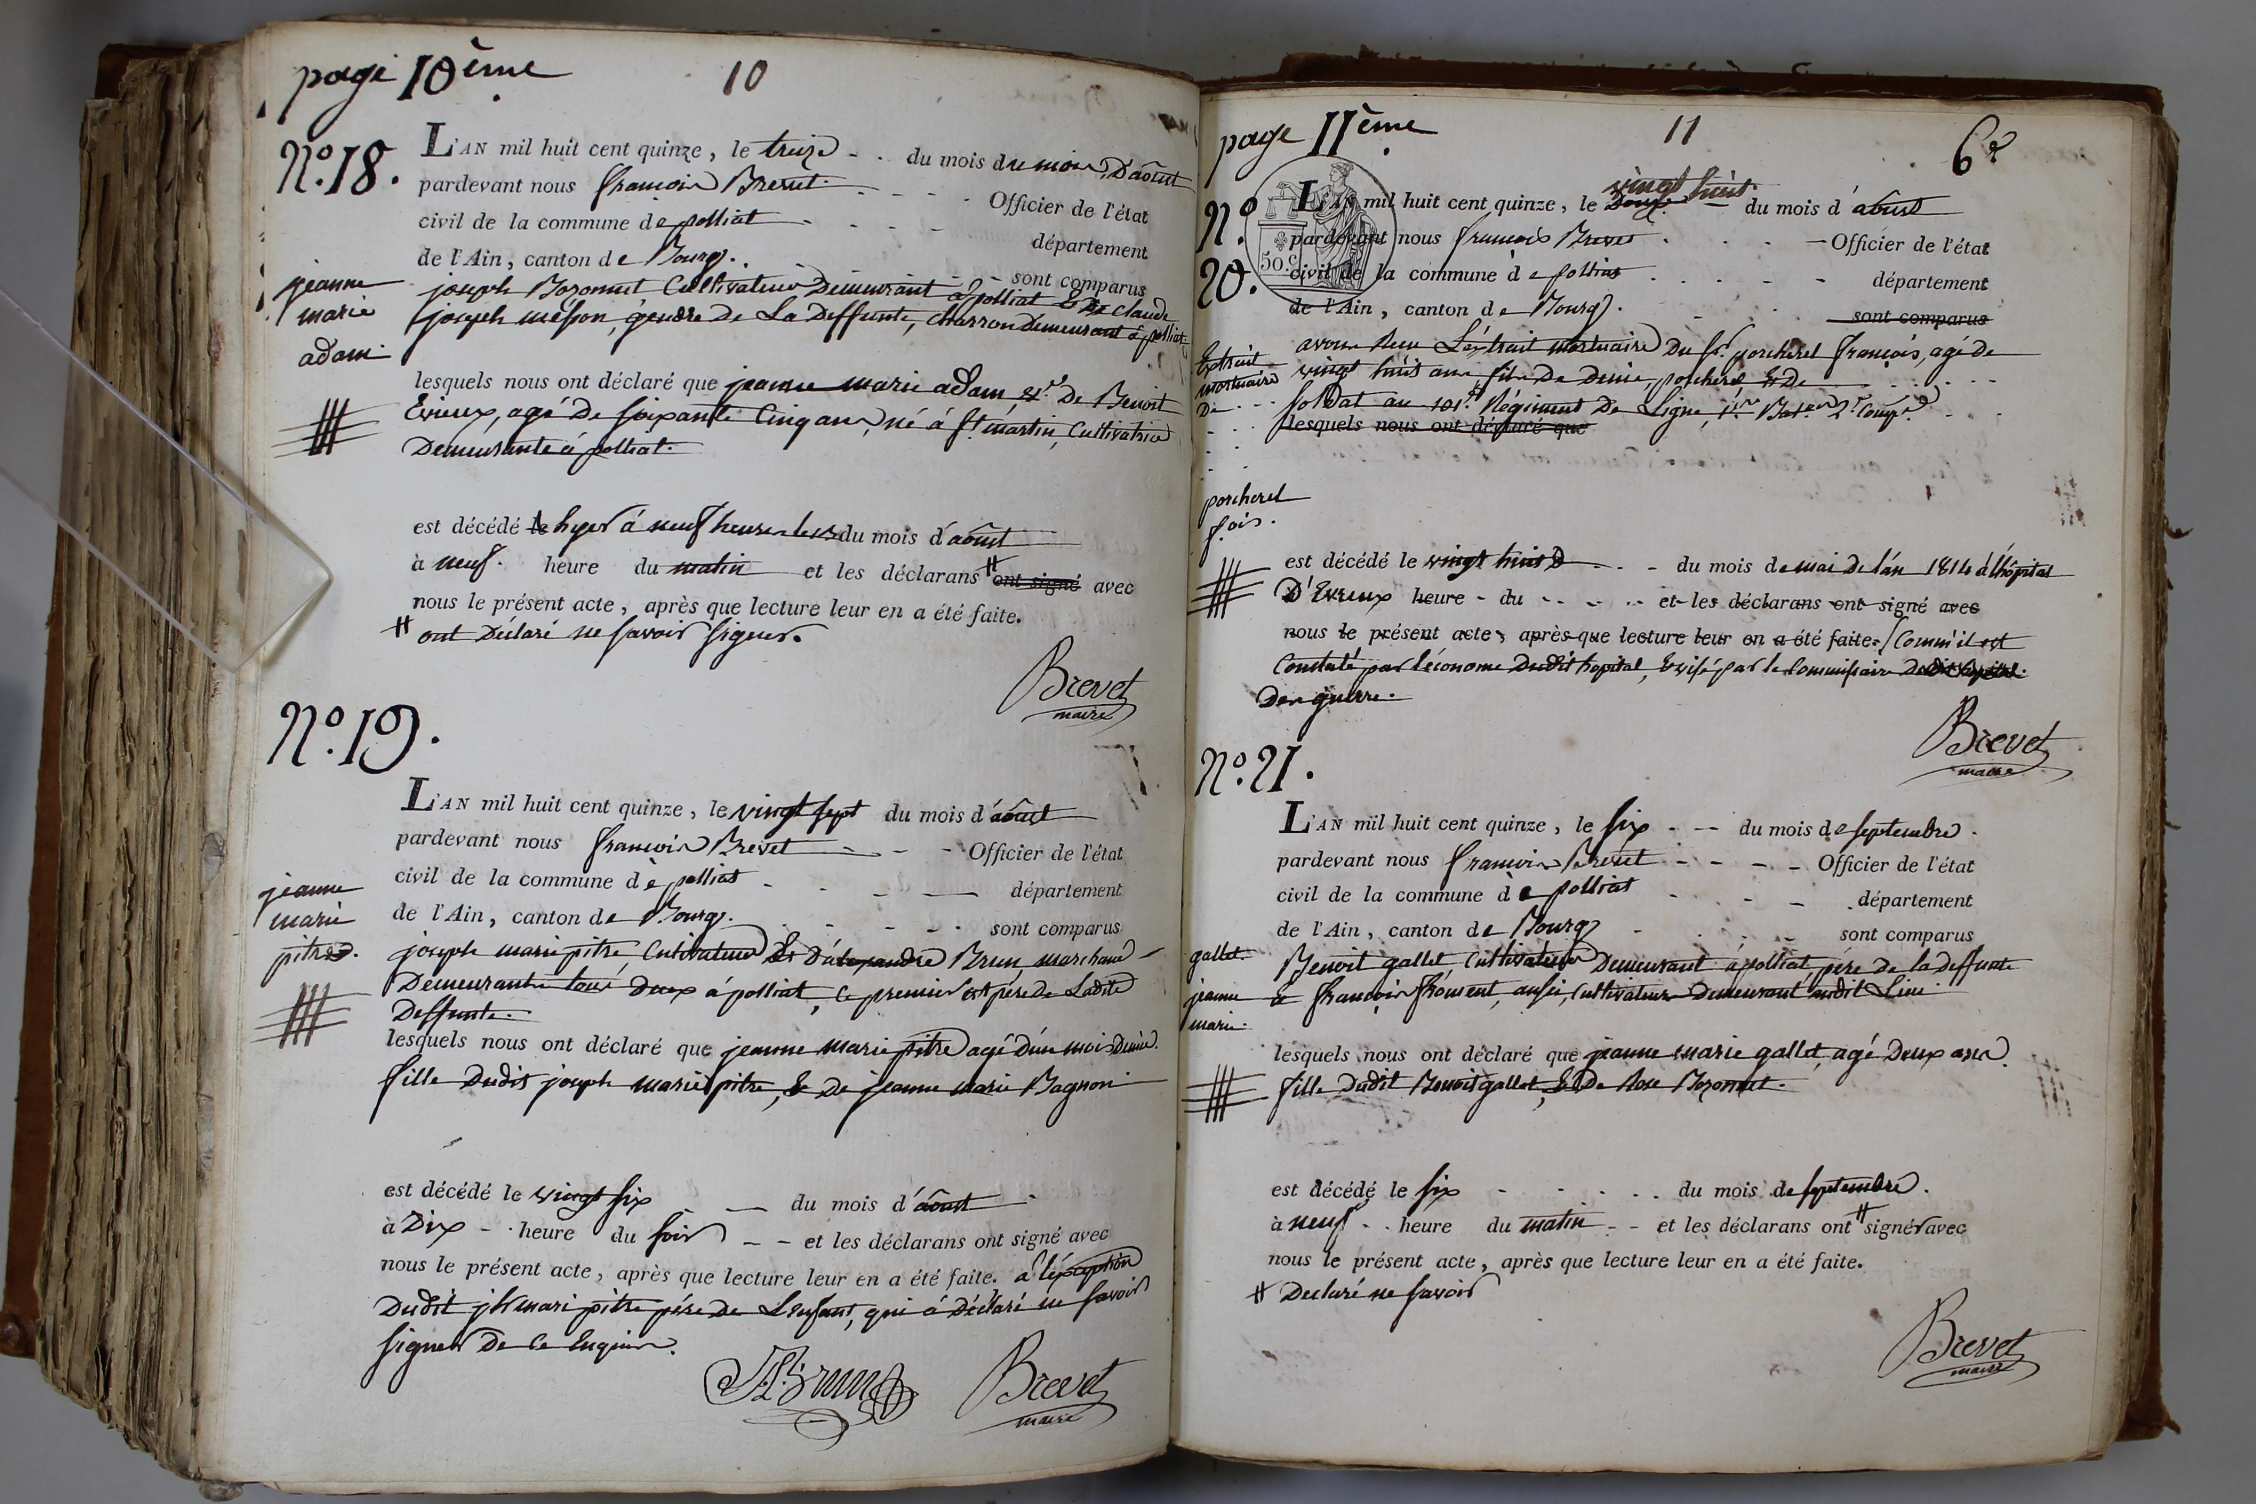 page 10ème
10
N.o 18.
L'AN mil huit cent quinze, le treize du mois du mois D'août
pardevant nous françois Brevet Officier de l'état
civil de la commune de polliat département
de l'Ain, canton de Bourg. sont comparus
jeanne
marie
adam
joseph Bozonnet Cultivateur Demeurant à polliat & De claude
joseph gendre De La Deffunte, charron Demeurant à polliat
lesquels nous ont déclaré que jeanne marie adam De Benoit
Evieux, agé De soixante Cinq ans, né à St. martin, Cultivatrice
Demeurante à polliat.
est décédé le hyer à neuf heures du mois d'août
à neuf heure du matin et les déclarans # ont signé avec
nous le présent acte, après que lecture leur en a été faite.
# ont Déclaré ne savoir signer.
Brevet
maire
N.o 19.
L'AN mil huit cent quinze, le vingt sept du mois d'août
pardevant nous françois Brevet Officier de l'état
civil de la commune de polliat département
de l'Ain, canton de Bourg. sont comparus
jeanne
marie
pitre.
joseph marie pitre Cultivateur & D'alexandre Brun, marchand
Demeurants tous deux à polliat, Ce premier est père De Ladite
Deffunte.
lesquels nous ont déclaré que jeanne marie pitre agé D'un mois & Demie
fille Dudit joseph marie pitre, & De jeanne marie Bagnon
est décédé le vingt six du mois d'août
à Dix heure du soir et les déclarans ont signé avec
nous le présent acte, après que lecture leur en a été faite. à l'exception
Dudit jh. mari pitre père De L'enfant, qui à Déclaré ne savoir
signer De Ce Enquis.
A. Brun Brevet
maire
page 11ème
11
6e
N.o
20.
50.c
vingt huit
L'AN mil huit cent quinze, le Douze du mois d'août
pardevant nous françois Brevet Officier de l'état
civil de la commune de polliat département
de l'Ain, canton de Bourg. sont comparus
Extrait
mortuaire
De
porcherel
fois.
avons Reçu L'extrait mortuaire Du Sr. porcherel françois, agé de
vingt huit ans, fils De Denie, porcherel & De
soldat au 101e. Régiment De Ligne, 1er Baton 2e Compe.
lesquels nous ont déclaré que
est décédé le vingt huit du mois de mai De l'an 1814 à l'hôpital
D'Evreux heure du et les déclarans ont signé avec
nous le présent acte, après que lecture leur en a été faite. / Comm'il est
Constaté par l'économe Dudit hopital, & visé par le Commissaire Dudit hopital.
Des guerre.
Brevet
maire
N.o 21.
L'AN mil huit cent quinze, le six du mois de septembre
pardevant nous françois Brevet Officier de l'état
civil de la commune de polliat département
de l'Ain, canton de Bourg sont comparus
gallet
jeanne
marie.
Benoit gallet Cultivateur Demeurant à polliat, père de la deffunte
& françois froment, aussi, Cultivateur Demeurant audit Lieu
lesquels nous ont déclaré que jeanne marie gallet, agé Deux ans
fille Dudit Benoit gallet, & De Rose Bozonnet.
est décédé le six du mois de septembre
à neuf heure du matin et les déclarans ont # signér avec
nous le présent acte, après que lecture leur en a été faite.
# Declaré ne savoir
Brevet
maire